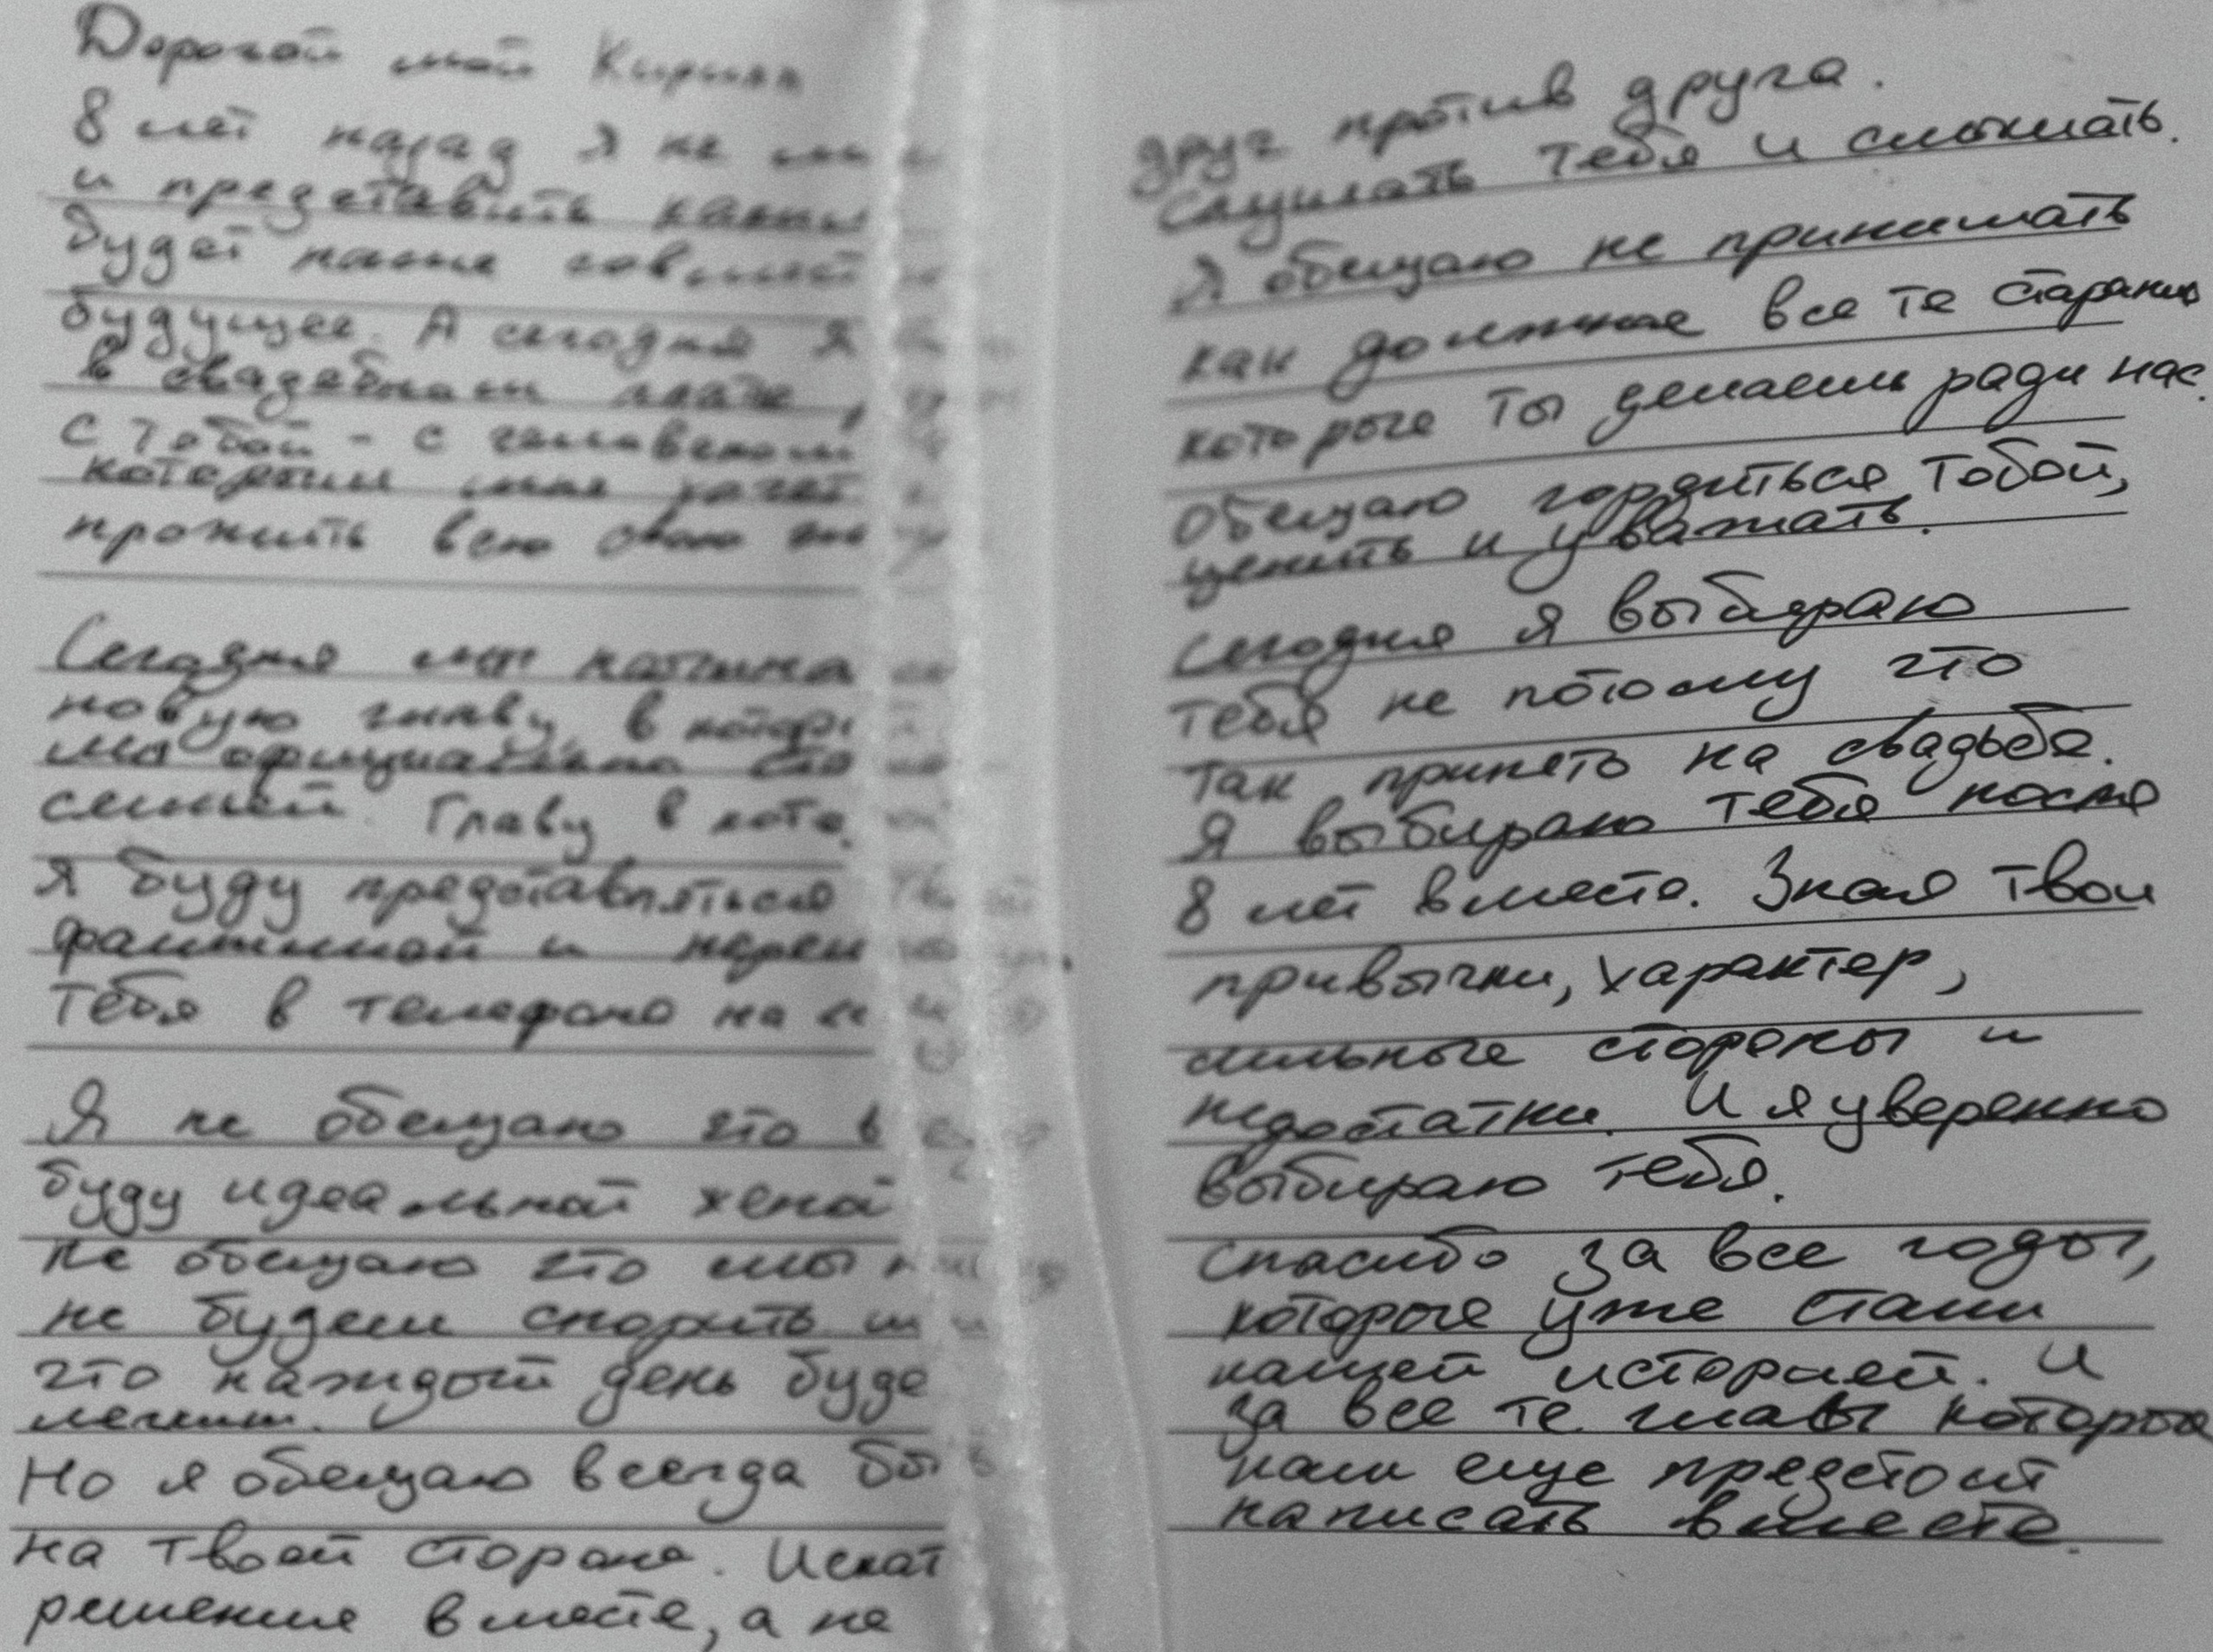 Дорогой мой Кирилл
8 лет назад я не
и представить каким
будет наше совместное
будущее. А сегодня я
в свадебном платье,
с тобой - с человеком
которым мне хочет
прожить всю свою
Сегодня мы начина
новую главу, в котор
мы официально ста
семьей. Главу в кото
я буду представляться
фамилией и переи
тебя в телефоне на
Я не обещаю что в
буду идеальной женой
не обещаю что мы
не будем спорить
что каждый день буде
легким.
Но я обещаю всегда быть
на твоей стороне. Искат
решение вместе, а не
друг против друга.
Слушать тебя и слышать.
Я обещаю не принимать
как должное все те старания
которые ты делаешь ради нас.
Обещаю гордиться тобой,
ценить и уважать.
Сегодня я выбираю
тебя не потому что
так принято на свадьбе.
Я выбираю тебя после
8 лет вместе. Зная твои
привычки, характер,
сильные стороны и
недостатки. И я уверенно
выбираю тебя.
Спасибо за все годы,
которые уже стали
нашей историей. И
за все те главы которые
нам еще предстоит
написать вместе.